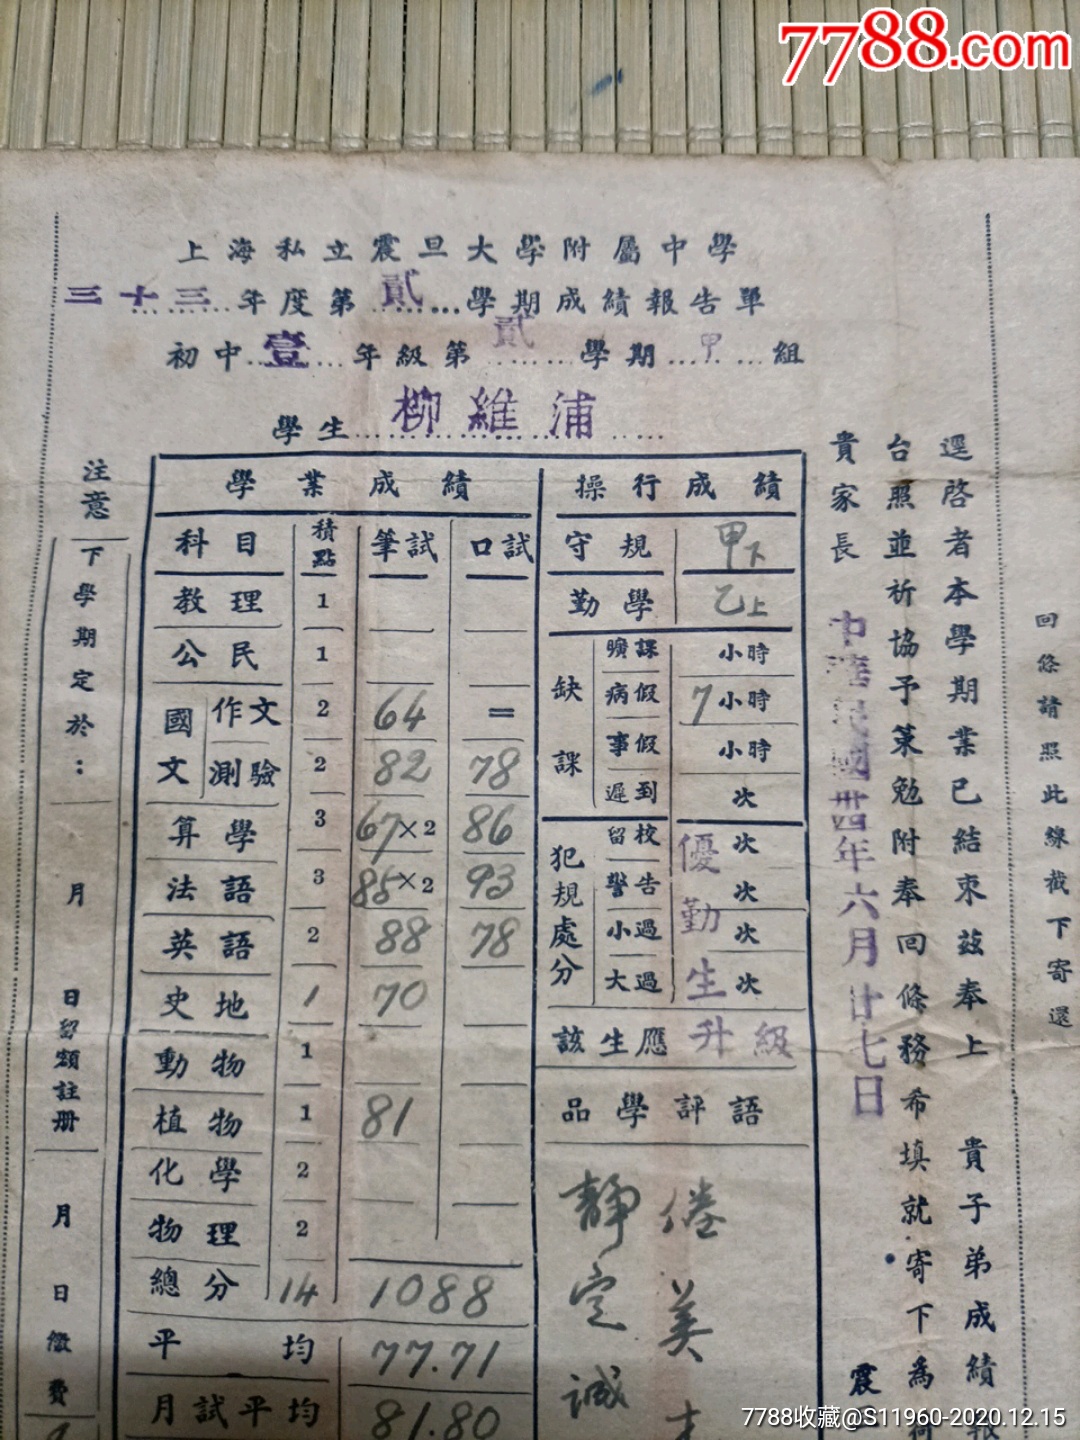 7788.com
上海私立震旦大學附屬中學
三十三年度第貳學期成績報告單
初中壹年級第貳學期甲組
學生 柳維浦
學業成績
科目 積點 筆試 口試
教理 1
公民 1
國文 作文 2 64 =
測驗 2 82 78
算學 3 67×2 86
法語 3 85×2 93
英語 2 88 78
史地 1 70
動物 1
植物 1 81
化學 2
物理 2
總分 14 1088
平均 77.71
月試平均 81.80
操行成績
守規 甲下
勤學 乙上
缺課 曠課 小時
病假 7小時
事假 小時
遲到 次
犯規處分 留校 次
警告 次
小過 次
大過 次
優勤生
該生應升級
品學評語
靜定誠
美才
逕啓者本學期業已結束茲奉上 貴子弟成績報
台照並祈協予策勉附奉回條務希填就寄下為荷
貴家長
震
中華民國卅四年六月廿七日
回條請照此線截下寄還
注意
下學期定於:
月
日
註册
月
日繳費
7788收藏@S11960-2020.12.15